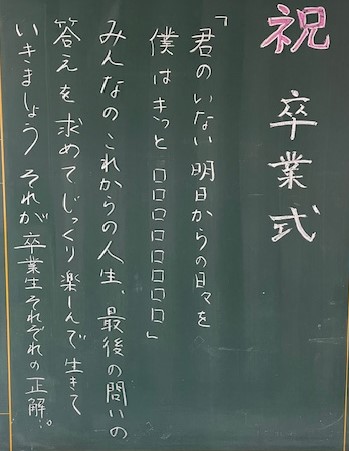 祝 卒業式
「君のいない明日からの日々を
僕はきっと□□□□□□□」
みんなのこれからの人生、最後の問いの
答えを求めてじっくり楽しんで生きて
いきましょう それが卒業生それぞれの正解。